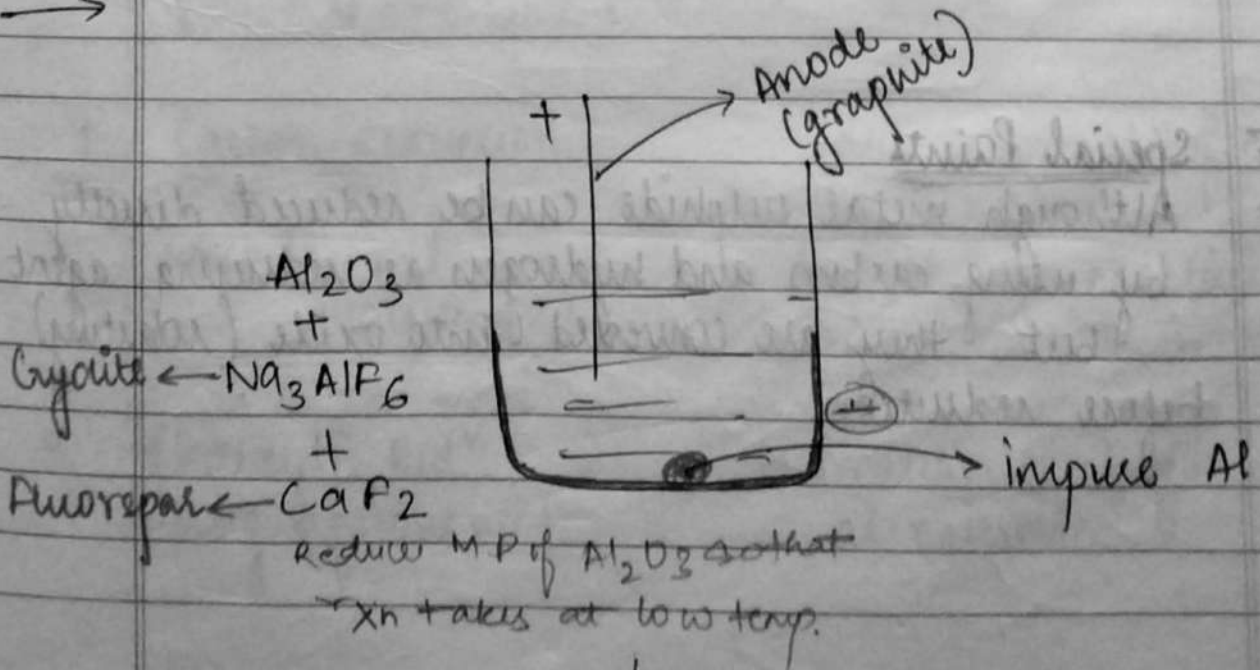 +
Anode
(graphite)
Al2O3
+
Cryolite ← Na3AlF6
+
−
impure Al
Fluorspar ← CaF2
Reduces MP of Al2O3 so that
rxn takes at low temp.